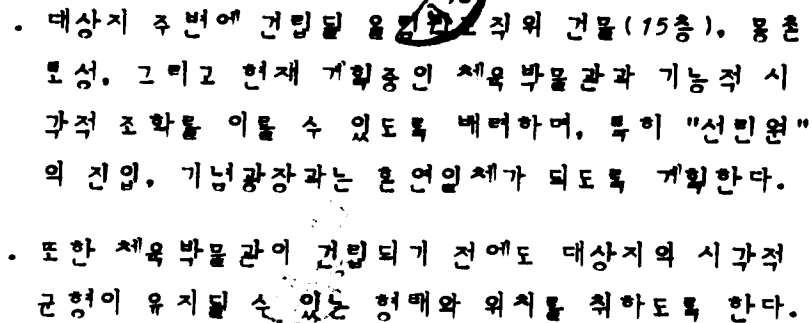 . 대상지 주변에 건립될 올림픽조직위 건물(15층), 몽촌
토성, 그리고 현재 계획중인 체육박물관과 기능적 시
각적 조화를 이룰 수 있도록 배려하며, 특히 "선린원"
의 진입, 기념광장과는 혼연일체가 되도록 계획한다.
. 또한 체육박물관이 건립되기 전에도 대상지의 시각적
균형이 유지될 수 있는 형태와 위치를 취하도록 한다.